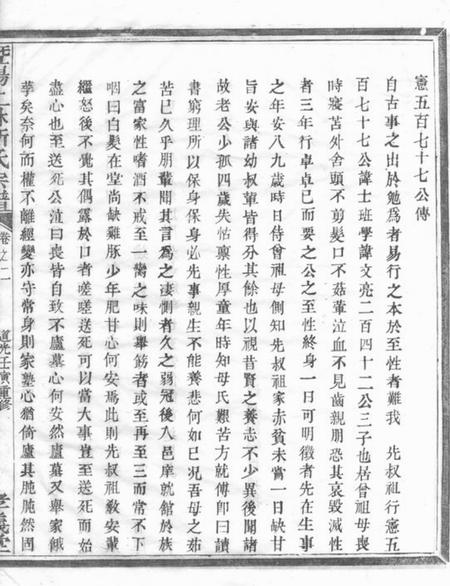 憲五百七十七公傳
自古事之出於勉爲者易行之本於至性者難我 先叔祖行憲五
百七十七公諱士班學諱文亮二百四十二公三子也居曾祖母喪
時寢苫外舍頭不剪髮口不茹葷泣血不見齒親朋恐其哀毀滅性
者三年行卓卓已而要之公之至性終身一日可明徵者先在生事
之年安八九歲時日侍曾祖母側知先叔祖家赤貧未嘗一日缺甘
旨安與諸幼叔輩皆得分其餘也以視昔賢之養志不少異後聞諸
故老公少孤四歲失怙稟性厚童年時知母氏艱苦方就傅卽曰讀
書窮理所以保身保身必先事親生不能養悲何如已况吾母之茹
苦已久乎朋輩聞其言爲之淒惻者久之弱冠後入邑庠就館於族
之富家性嗜酒不戒至一臠之味則舉筋者或至再至三而常不下
咽曰白髮在堂尚缺雞豚少年肥甘心何安焉此則先叔祖敎安輩
繼怒後不覺其偶露於口者嗟嗟送死可以當大事豈至送死而始
盡心也至送死公泣曰喪皆自致不廬墓心何安然廬墓又舉家餓
莩矣奈何而權不離經變亦守常身則家塾心猶倚廬其肫肫然固
雲陽上林荊氏宗譜 卷之二
道光壬寅重修
孝義堂